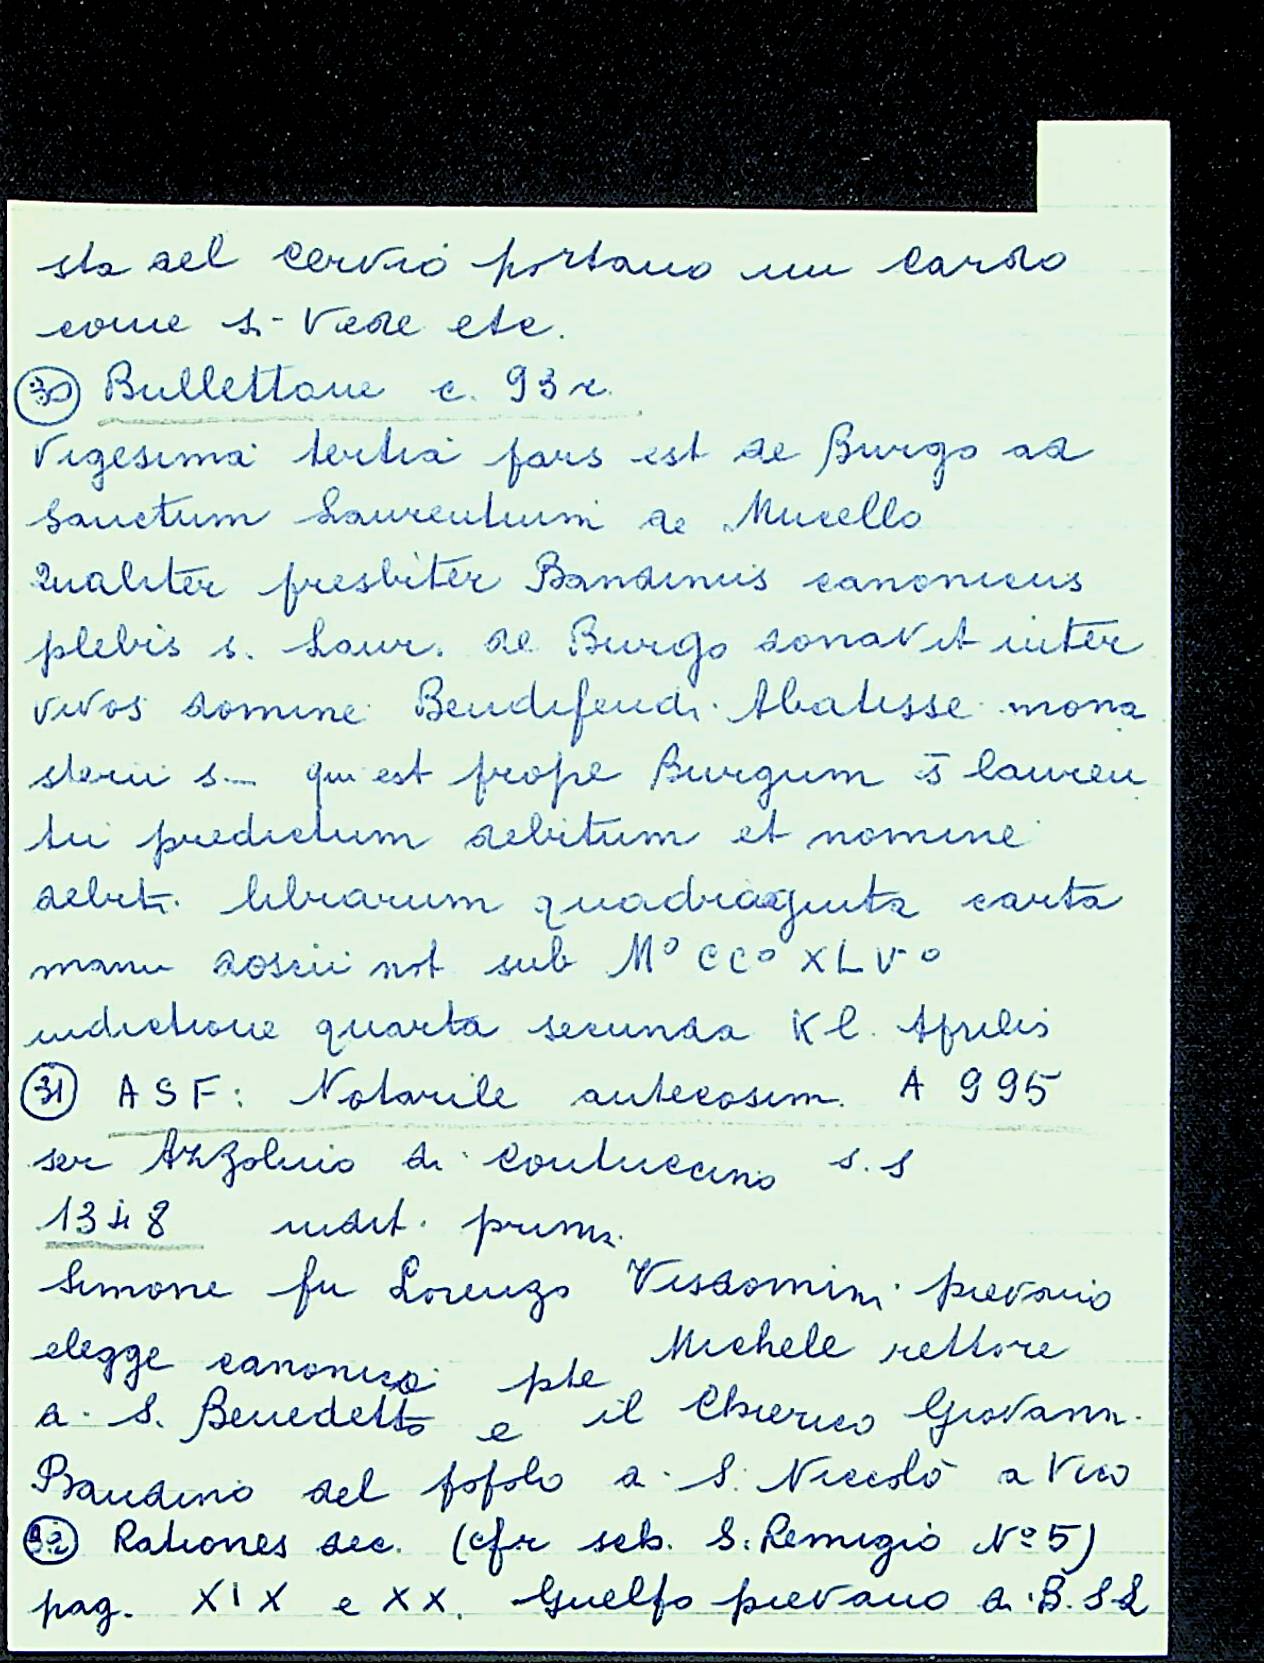 sta del Cervio portano un cardo
come si Vede etc.
30 Bullettone c. 93 r.
Vigesima tertia pars est de Burgo ad
Sanctum Laurentium de Mucello
Qualiter presbiter Bandinus canonicus
plebis s. Laur. de Burgo donavit inter
vivos domine Bendifendi Abatisse mona
sterii s. qui est prope Burgum s lauren
tii predictum debitum et nomine
debiti librarum quadraginta carta
manu not sub M° CC° XLV°
indictione quarta secunda Kl. Aprilis
31 ASF: Notarile antecosim. A 995
ser Azzolino di Contuccino s.s
1348 indit. prima
Simone fu Lorenzo Visdomini pievano
elegge canonico pte Michele rettore
a S. Benedetto e il Chierico Giovanni
Bandino del popolo a S. Niccolò a Vico
32 Rationes dec. (cfr sch. S. Remigio N° 5)
pag. XIX e XX. Guelfo pievano a B.S.L